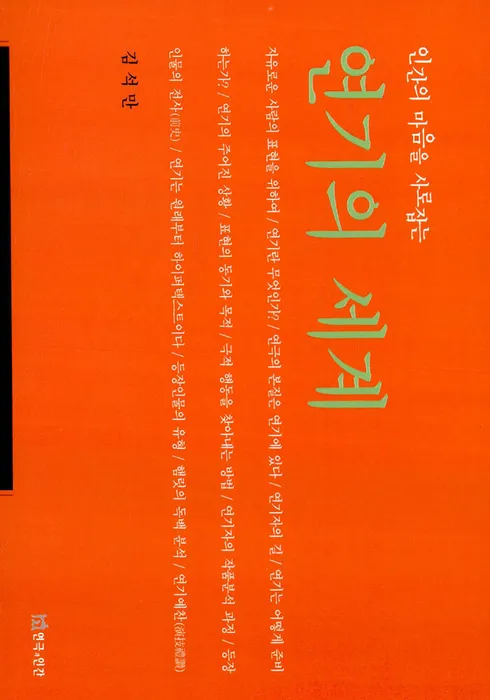 인간의 마음을 사로잡는
연기의 세계
자유로운 사람의 표현을 위하여 / 연기란 무엇인가? / 연극의 본질은 연기에 있다 / 연기자의 길 / 연기는 어떻게 준비
하는가? / 연기의 주어진 상황 / 표현의 동기와 목적 / 극적 행동을 찾아내는 방법 / 연기자의 작품분석 과정 / 등장
인물의 전사(前史) / 연기는 원래부터 하이퍼텍스트이다 / 등장인물의 유형 / 햄릿의 독백 분석 / 연기예찬(演技禮讚)
김석만
연극과인간